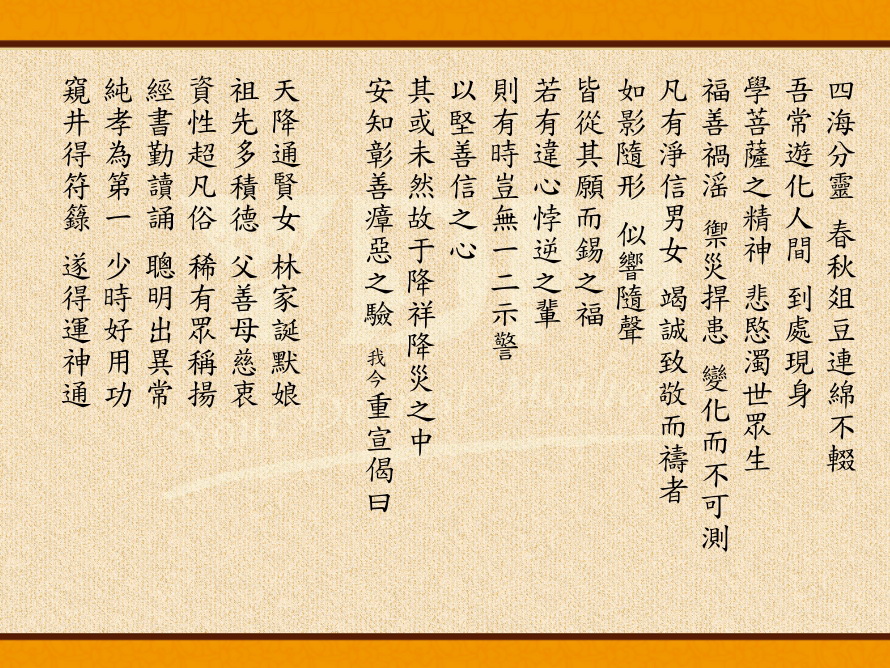 四海分靈 春秋俎豆連綿不輟
吾常遊化人間 到處現身
學菩薩之精神 悲愍濁世眾生
福善禍滛 禦災捍患 變化而不可測
凡有淨信男女 竭誠致敬而禱者
如影隨形 似響隨聲
皆從其願而錫之福
若有違心悖逆之輩
則有時豈無一二示警
以堅善信之心
其或未然故于降祥降災之中
安知彰善癉惡之驗 我今重宣偈曰
天降通賢女 林家誕默娘
祖先多積德 父善母慈衷
資性超凡俗 稀有眾稱揚
經書勤讀誦 聰明出異常
純孝為第一 少時好用功
窺井得符籙 遂得運神通